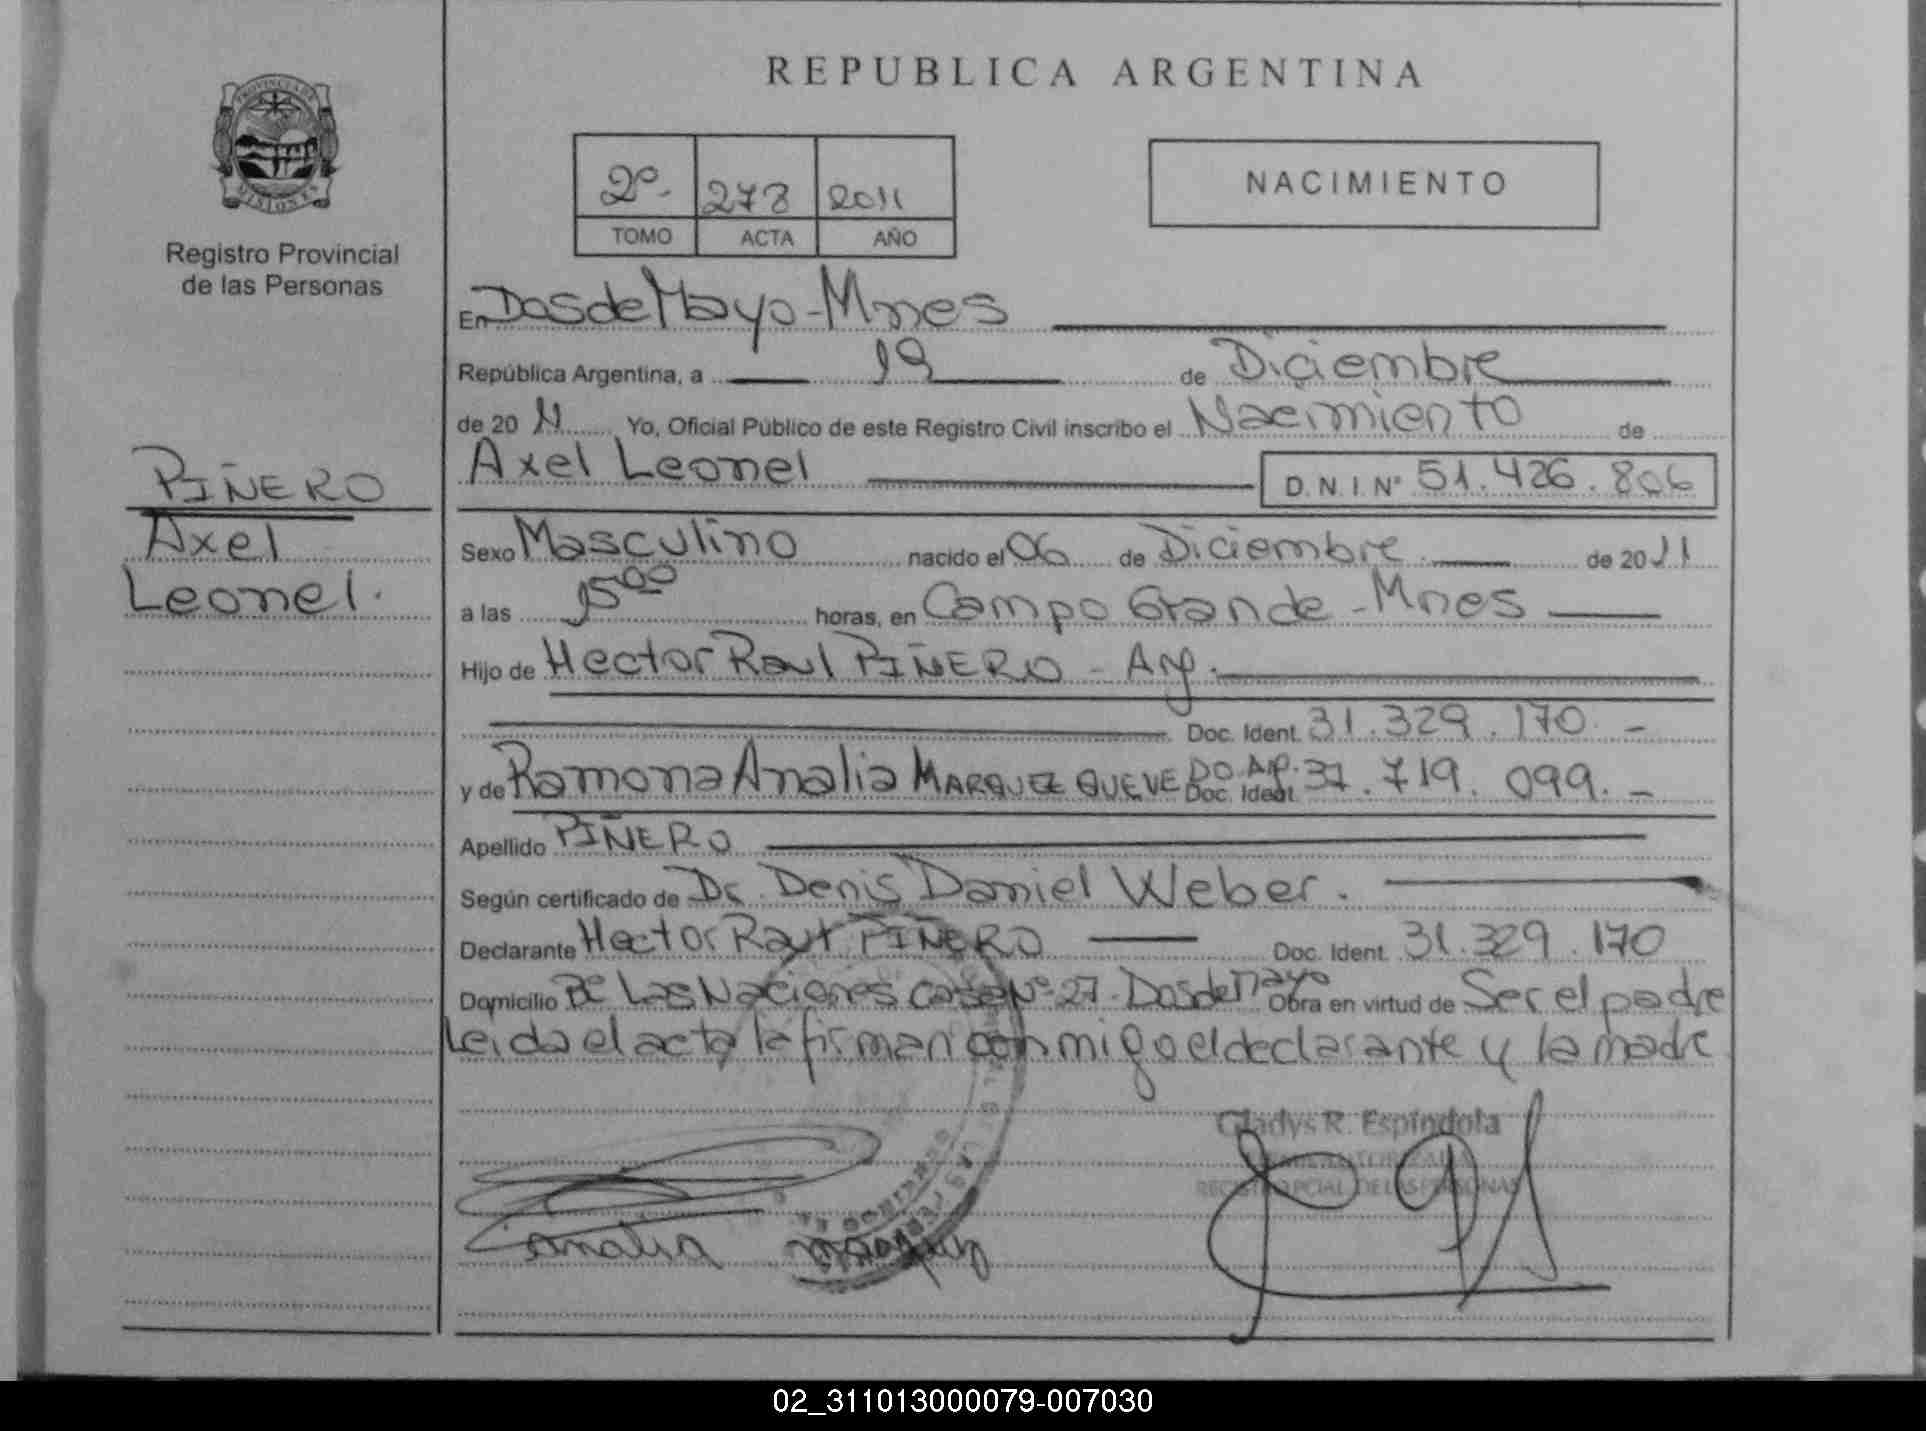 REPUBLICA ARGENTINA
PROVINCIA DE
MISIONES
Registro Provincial
de las Personas
2º 273 2011
TOMO ACTA AÑO
NACIMIENTO
En Dos de Mayo - Mnes
República Argentina, a 19 de Diciembre
de 20 11 Yo, Oficial Público de este Registro Civil inscribo el Nacimiento de
Axel Leonel D.N.I. Nº 51.426.806
PIÑERO
Axel
Leonel.
Sexo Masculino nacido el 06 de Diciembre de 20 11
a las 15⁰⁰ horas, en Campo Grande - Mnes
Hijo de Hector Raul PIÑERO - Arg.
Doc. Ident. 31.329.170. -
y de Ramona Analia MARQUEZ QUEVEDO Arg. Doc. Ident. 37.719.099. -
Apellido PIÑERO
Según certificado de Dr. Denis Daniel Weber.
Declarante Hector Raul PIÑERO Doc. Ident. 31.329.170
Domicilio Bº Las Naciones casa Nº 27. Dos de Mayo Obra en virtud de Ser el padre
Leida el acta la firman conmigo el declarante y la madre
Gladys R. Espíndola
REGISTRO PCIAL. DE LAS PERSONAS
Analia Marquez
02_311013000079-007030